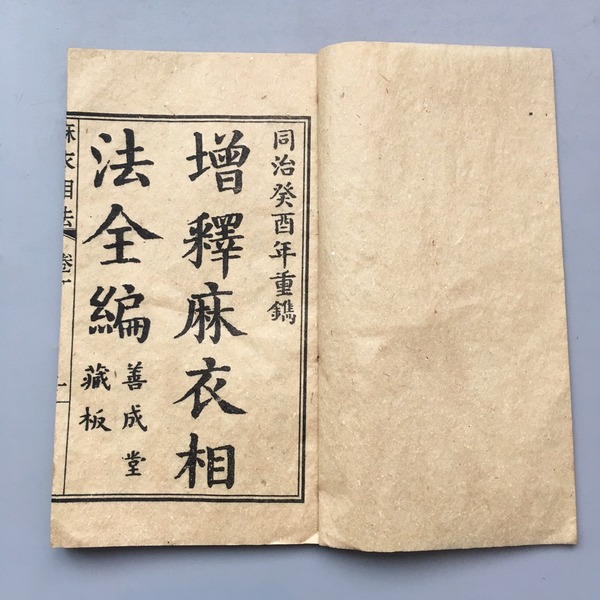 同治癸酉年重鐫
增釋麻衣相
法全編
善成堂
藏板
麻衣相法 卷一
一